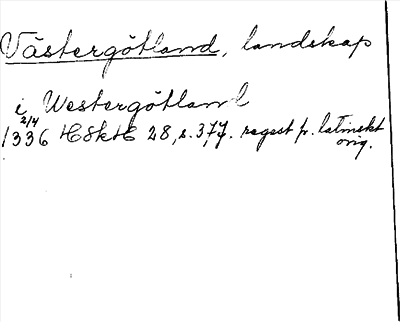 Västergötland, landskap
i Westergötland
2/4
1336 HSkH 28, s. 377. regest fr. latinskt
orig.